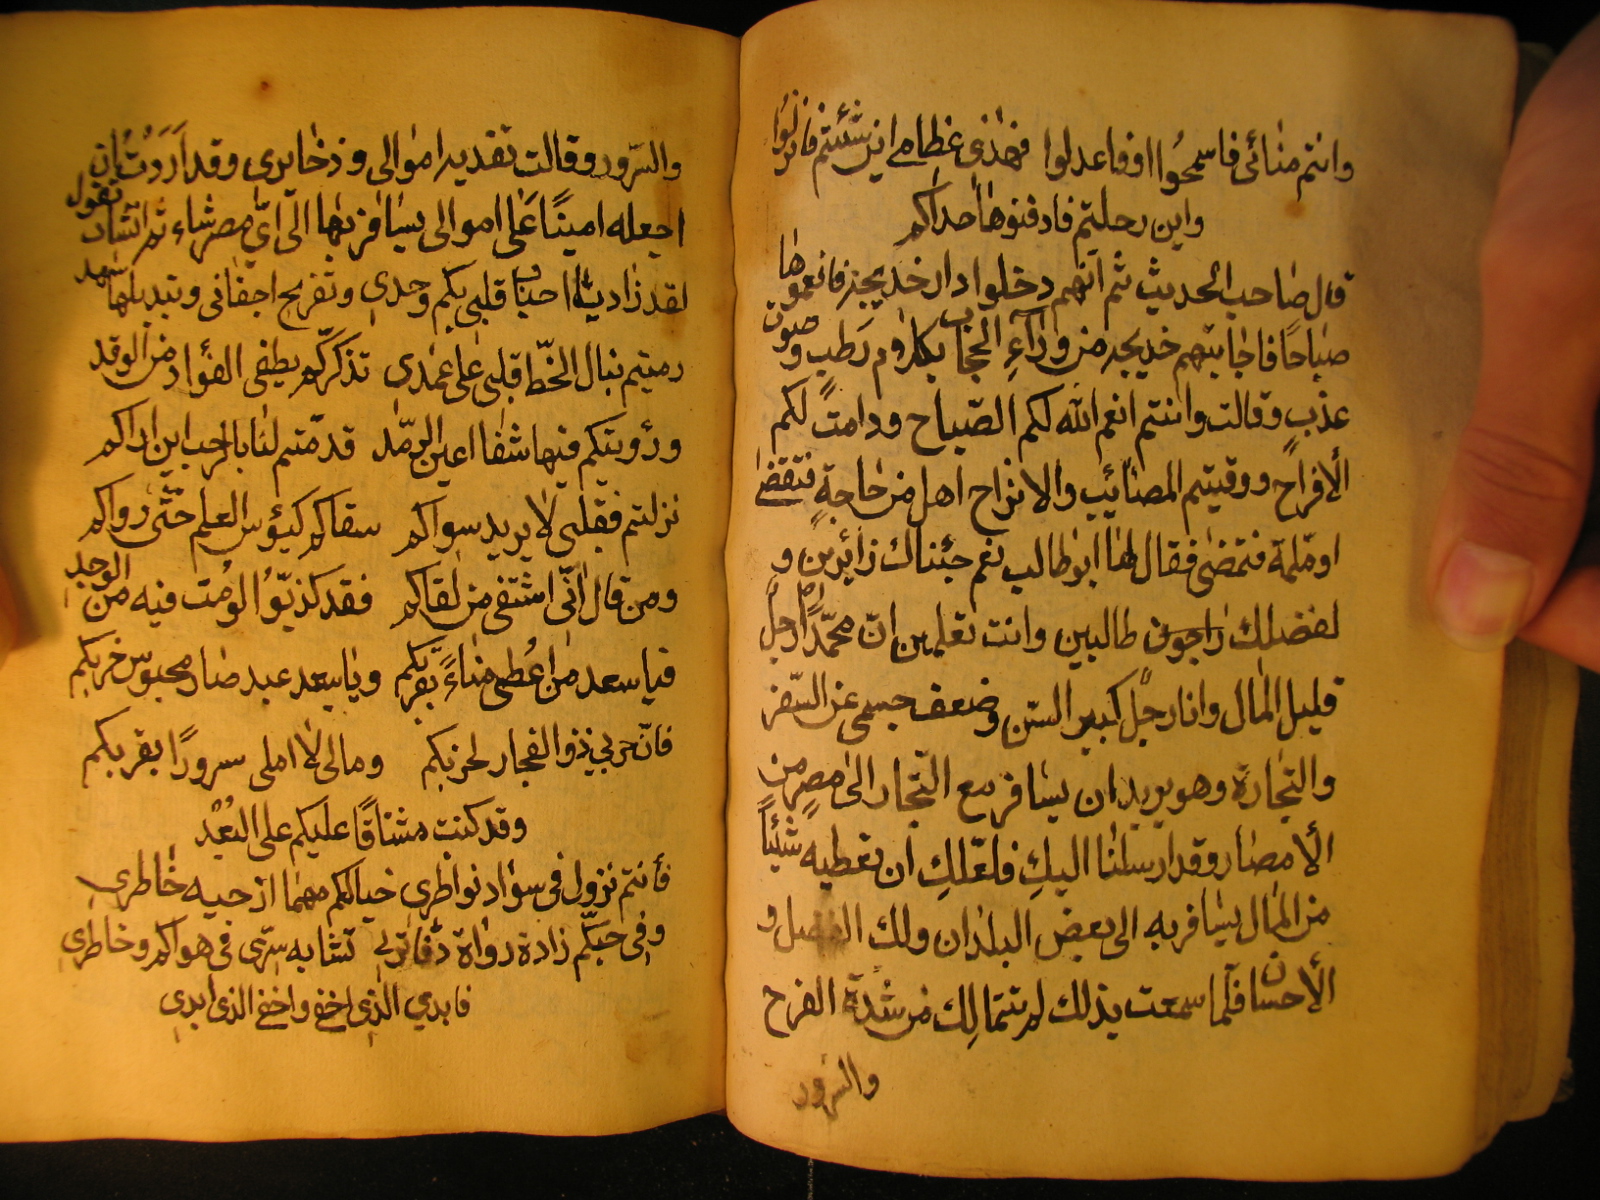 وانتم منائى فاسمحوا او فاعدلوا فهذى عظامى اين شئتم فانزلوا
واين رحلتم فادفنوها حداكم
قال صاحب الحديث ثم انهم دخلوا دار خديجة فانعموها
صباحًا فاجابتهم خديجة من ورآء الحجاب بكلام رطب وصوت
عذب وقالت وانتم انعم الله لكم الصباح ودامت لكم
الافراح ووقيتم المصائب والاتراح اهل من حاجةٍ فتقضى
او ملمة فتمضى فقال لها ابوطالب نعم جئناك زائرين و
لفضلك راجون طالبين وانت تعلمين ان محمّدًا رجلٌ
قليل المال وانا رجلٌ كبير السن وضعف جسمى عن السّفر
والتجارة وهو يريد ان يسافر مع التّجار الى مصرٍ من
الأمصار وقد ارسلنا اليكِ فلعلّكِ ان تعطيه شيئًا
من المال يسافر به الى بعض البلدان ولك الفضل و
الأحسان فلما سمعت بذلك لم تتمالك من شدة الفرح
والسرور
والسّرور وقالت تفديه اموالى وذخايرى وقد اردتُ ان
اجعله امينًا على اموالى يسافر بها الى اىّ مصر شاء ثم انشاد تقول
لقد زاد يا احباب قلبى بكم وجدى وتفريح اجفانى وتبديلها سهد
رميتم بنبال الخّط قلبى على عمدى تذكركم يطفى الفؤاد من الوقد
ورؤيتكم فيها شفا اعين الرمّد قدمتم لنا بالرحب اين اراكم
نزلتم فقلبى لا يريد سواكم سقاكم كيؤس العلم حتّى رواكم
ومن قال انّى اشتفى من لقاكم فقد كذبوا لو مت فيه من الوجد
فيا سعد من اعطى مناءً بقربكم ويا سعد عبد صار محبوس خربكم
فان حربى ذوالفجار لحزبكم ومالى لا املى سرورًا بقربكم
وقد كنت مشتاقًا عليكم على البُعْد
فأنتم نزول فى سواد نواطرى خيالكم مهما از حيه خاطرى
وفى حبّكم زادة رواة دفاترى تشابه سرّى فى هواكم وخاطرى
فابدي الذى اخفى واخفى الذى ابدى